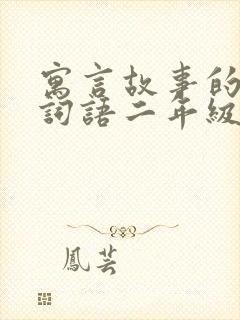 寓言故事的
詞語二年級
鳳芸